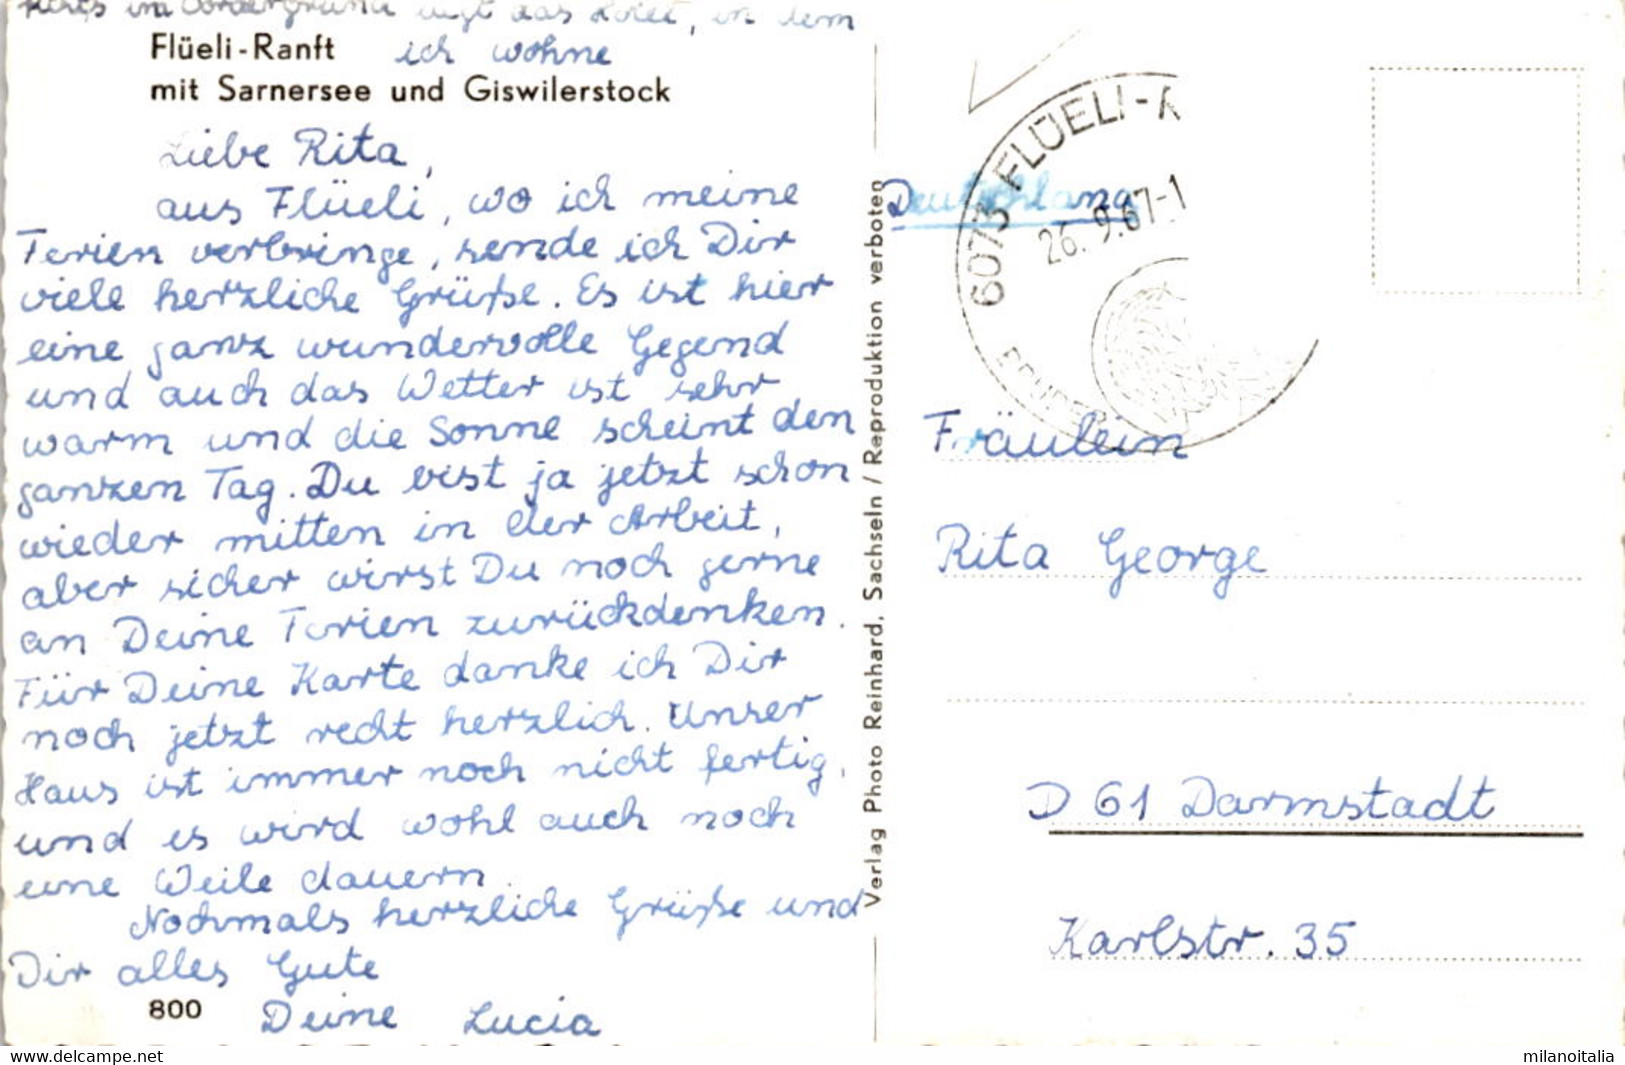 rechts im Vordergrund liegt das Hotel, in dem
ich wohne
Flüeli-Ranft
mit Sarnersee und Giswilerstock
Liebe Rita,
aus Flüeli, wo ich meine
Ferien verbringe, sende ich Dir
viele herzliche Grüße. Es ist hier
eine ganz wundervolle Gegend
und auch das Wetter ist sehr
warm und die Sonne scheint den
ganzen Tag. Du bist ja jetzt schon
wieder mitten in der Arbeit,
aber sicher wirst Du noch gerne
an Deine Ferien zurückdenken.
Für Deine Karte danke ich Dir
noch jetzt recht herzlich. Unser
Haus ist immer noch nicht fertig,
und es wird wohl auch noch
eine Weile dauern.
Nochmals herzliche Grüße und
Dir alles Gute
Deine Lucia
800
Verlag Photo Reinhard, Sachseln / Reproduktion verboten
Deutschland
6073 FLÜELI-R
26.9.67-1
BRUDER
Fräulein
Rita George
D 61 Darmstadt
Karlstr. 35
https://www.delcampe.net
milanoitalia